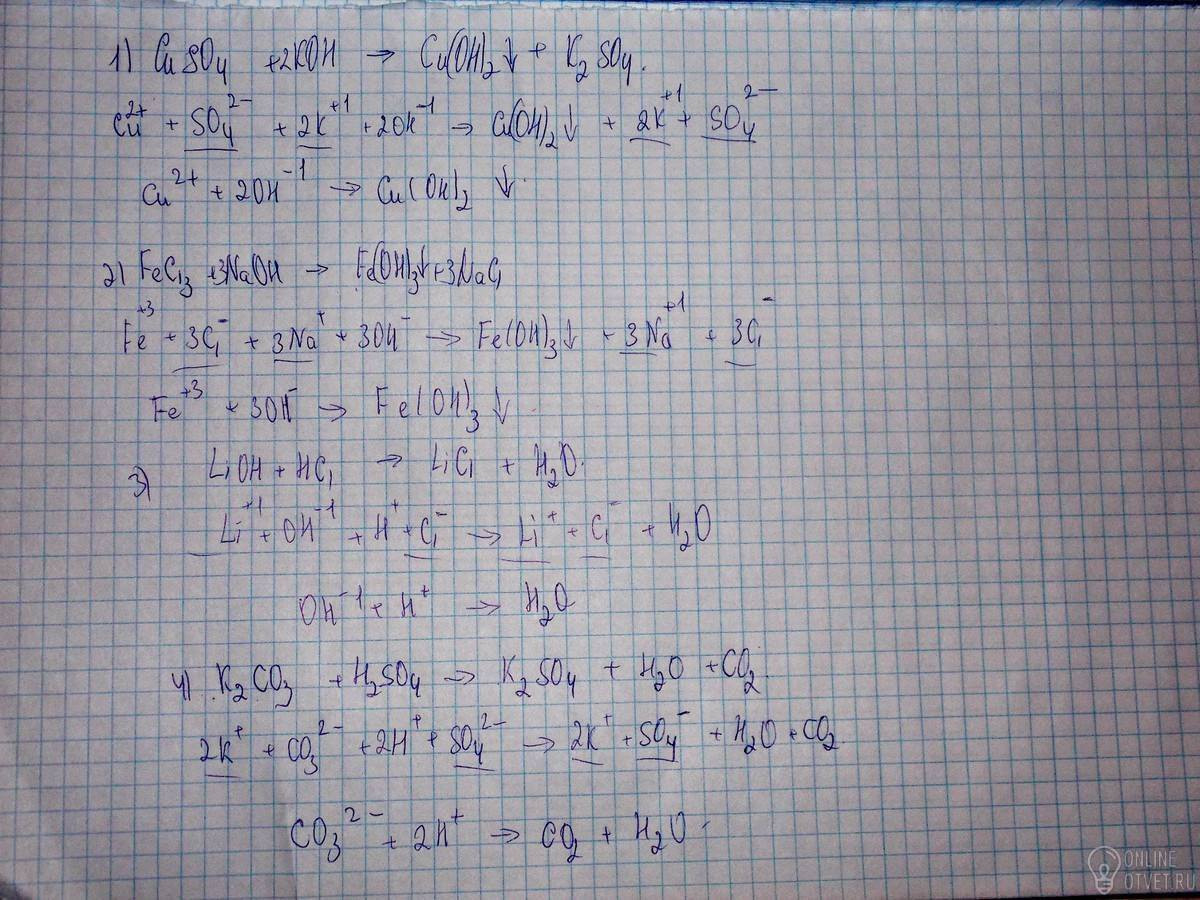 1) CuSO₄ +2KOH → Cu(OH)₂↓ + K₂SO₄.
Cu²⁺ + SO₄²⁻ + 2K⁺¹ + 2OH⁻¹ → Cu(OH)₂↓ + 2K⁺¹ + SO₄²⁻
Cu²⁺ + 2OH⁻¹ → Cu(OH)₂ ↓.
2) FeCl₃ +3NaOH → Fe(OH)₃↓+3NaCl
Fe⁺³ + 3Cl⁻ + 3Na⁺ + 3OH⁻ → Fe(OH)₃↓ + 3Na⁺¹ + 3Cl⁻
Fe⁺³ + 3OH⁻ → Fe(OH)₃↓.
3) LiOH + HCl → LiCl + H₂O.
Li⁺¹ + OH⁻¹ + H⁺ + Cl⁻ → Li⁺ + Cl⁻ + H₂O
OH⁻¹ + H⁺ → H₂O
4) K₂CO₃ + H₂SO₄ → K₂SO₄ + H₂O + CO₂.
2K⁺ + CO₃²⁻ + 2H⁺ + SO₄²⁻ → 2K⁺ + SO₄⁻ + H₂O + CO₂
CO₃²⁻ + 2H⁺ → CO₂ + H₂O.
ONLINE
OTVET.RU